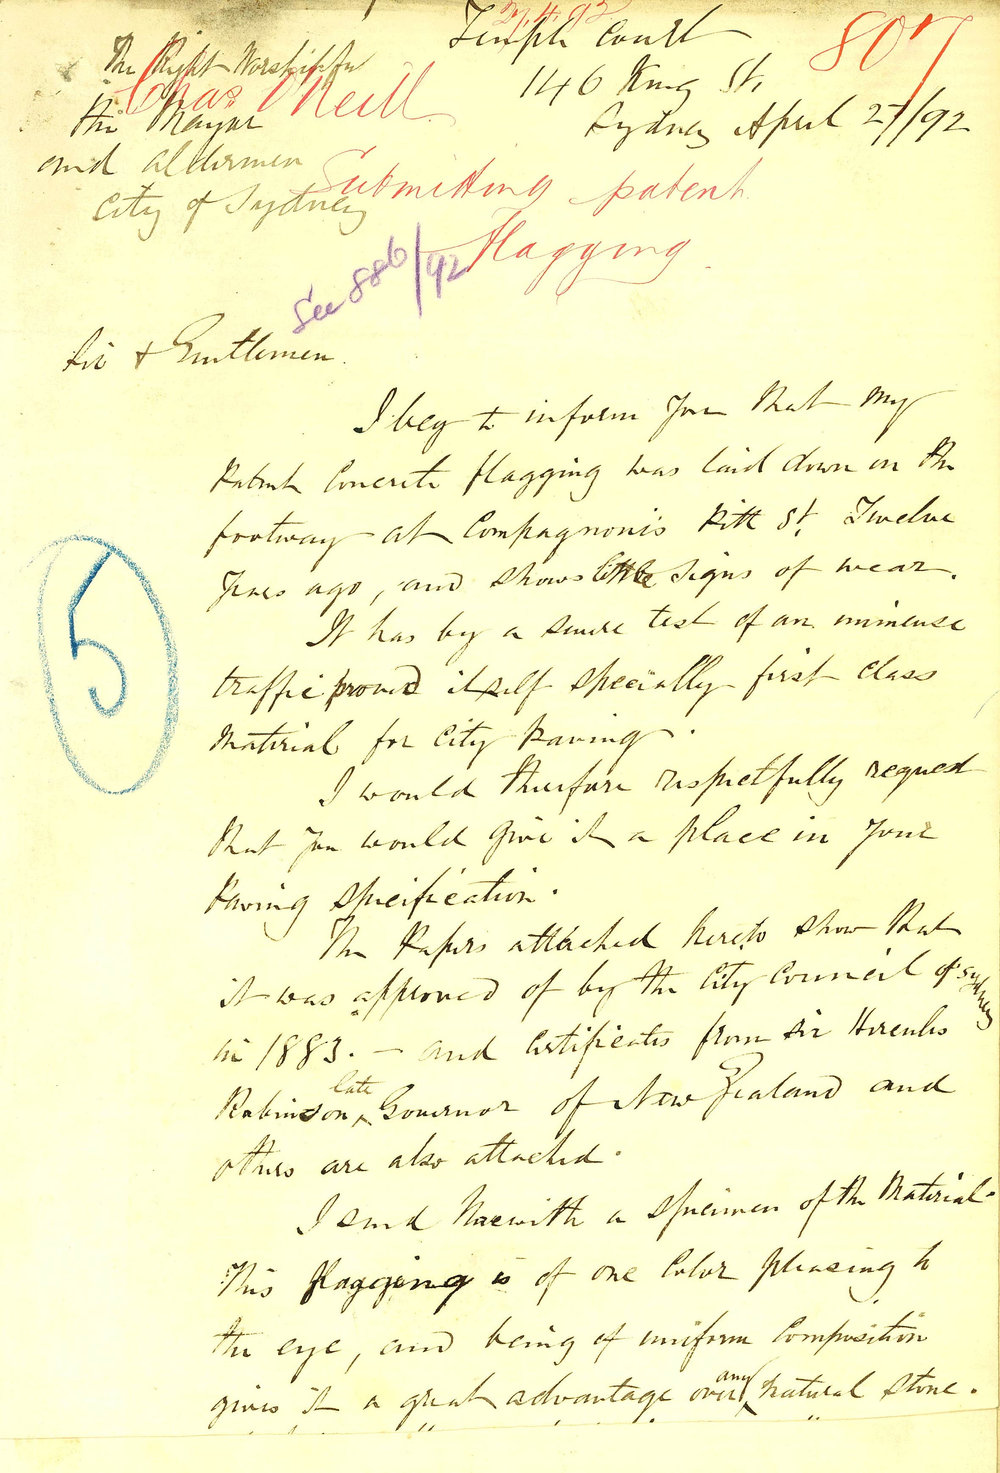 27.4.92
807
Temple Court
146 King St.
Sydney April 27/92
The Right Worshipful
Chas O'Neill
The Mayor
and Aldermen
City of Sydney
Submitting patent
flagging
See 886/92
Sir & Gentlemen.
I beg to inform you that my
Patent Concrete flagging was laid down on the
footway at Compagnoni's Pitt St. Twelve
years ago, and shows little signs of wear.
It has by a severe test of an immense
traffic proved itself specially first class
Material for City Paving.
I would therefore respectfully request
that you would give it a place in your
Paving specification.
The Papers attached hereto show that
it was approved of by the City Council of Sydney
in 1883. – and Certificates from Sir Hercules
Robinson, late Governor of New Zealand and
others are also attached.
I send herewith a specimen of the Material.
This flagging is of one Color pleasing to
the eye, and being of uniform Composition
gives it a great advantage over any natural stone.
5